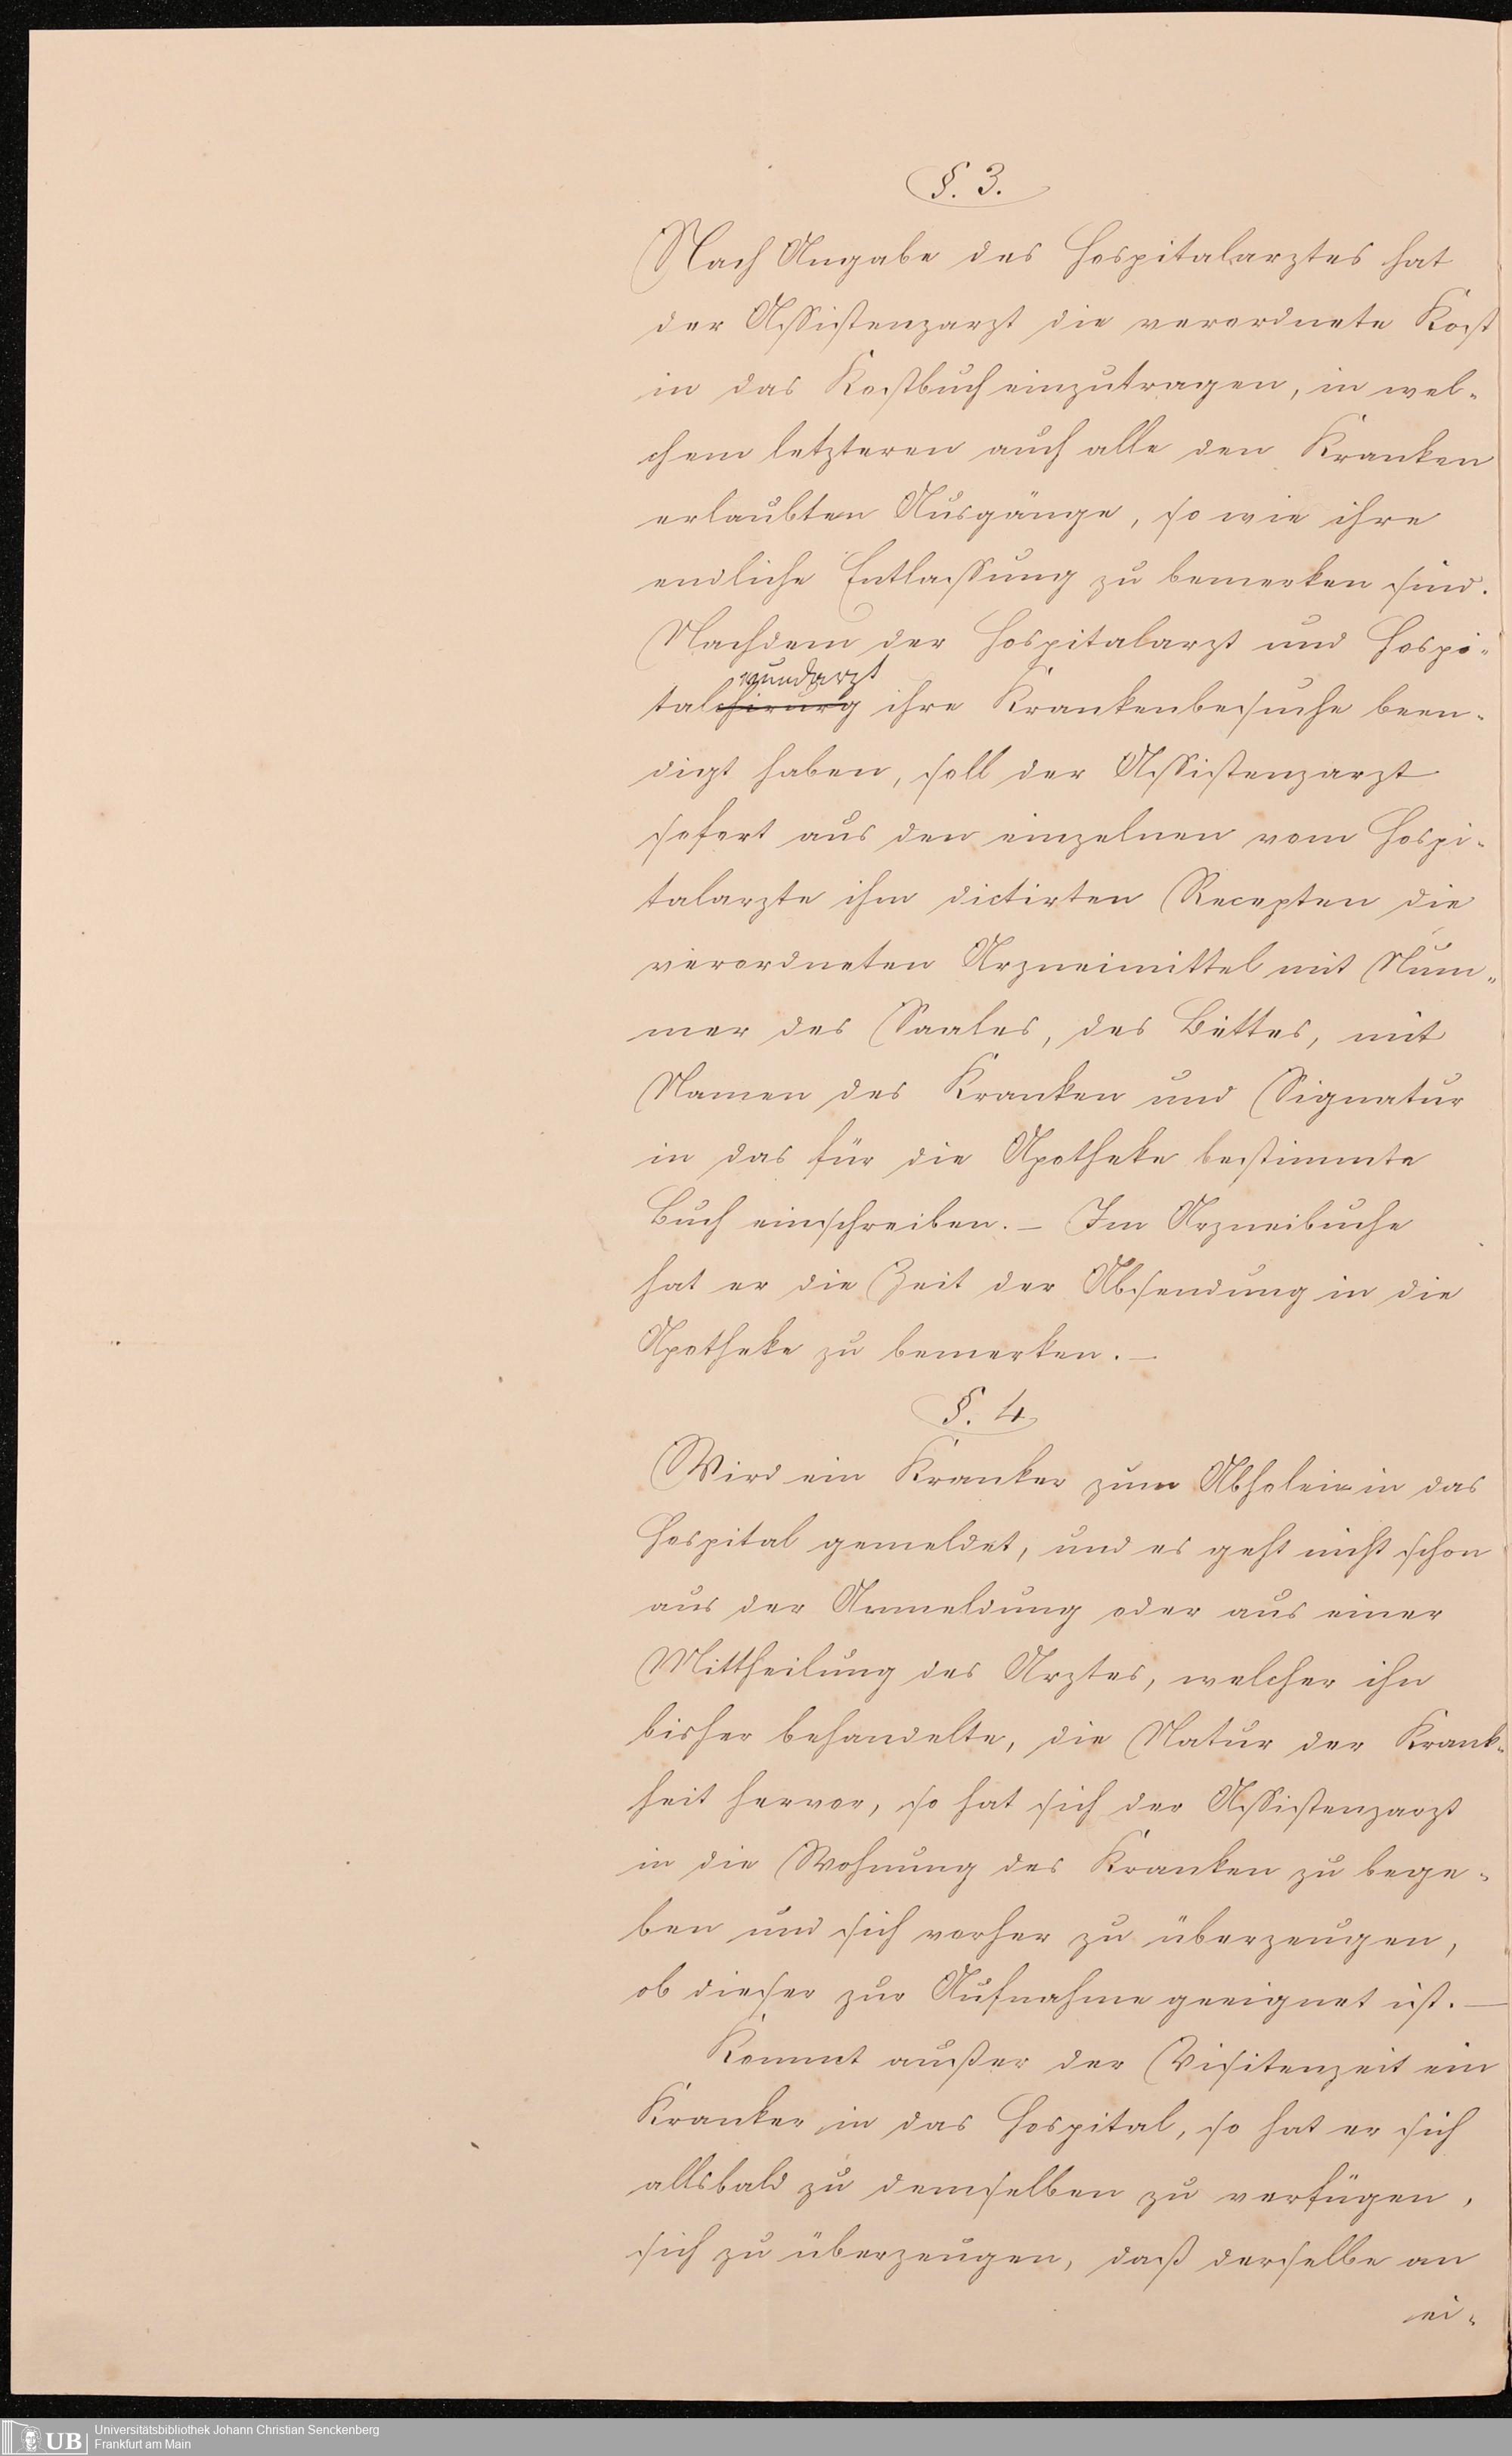 §. 3.
Nach Angabe des Hospitalarztes hat
der Assistenzarzt die verordnete Kost
in das Kostbuch einzutragen, in wel-
chem letzteren auch alle den Kranken
erlaubten Ausgänge, so wie ihre
endliche Entlassung zu bemerken sind.
Nachdem der Hospitalarzt und Hospi-
wundarzt
talchirurg ihre Krankenbesuche been-
digt haben, soll der Assistenzarzt
sofort aus den einzelnen vom Hospi-
talarzte ihm dictirten Recepten die
verordneten Arzneimittel mit Num-
mer des Saales, des Bettes, mit
Namen des Kranken und Signatur
in das für die Apotheke bestimmte
Buch einschreiben. – Im Arzneibuche
hat er die Zeit der Absendung in die
Apotheke zu bemerken. –
§. 4
Wird ein Kranker zum Abholen in das
Hospital gemeldet, und es geht nicht schon
aus der Anmeldung oder aus einer
Mittheilung des Arztes, welcher ihn
bisher behandelte, die Natur der Krank-
heit hervor, so hat sich der Assistenzarzt
in die Wohnung des Kranken zu bege-
ben und sich vorher zu überzeugen,
ob dieser zur Aufnahme geeignet ist. –
Kommt außer der Visitenzeit ein
Kranker in das Hospital, so hat er sich
allsbald zu demselben zu verfügen,
sich zu überzeugen, daß derselbe an
ei-
UB
Universitätsbibliothek Johann Christian Senckenberg
Frankfurt am Main